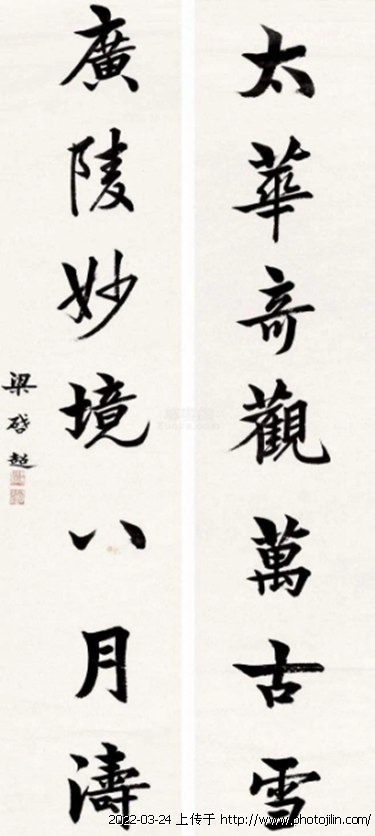 太華奇觀萬古雪
廣陵妙境八月濤
梁啓超
2022-03-24 上传于 http://www.photojilin.com/